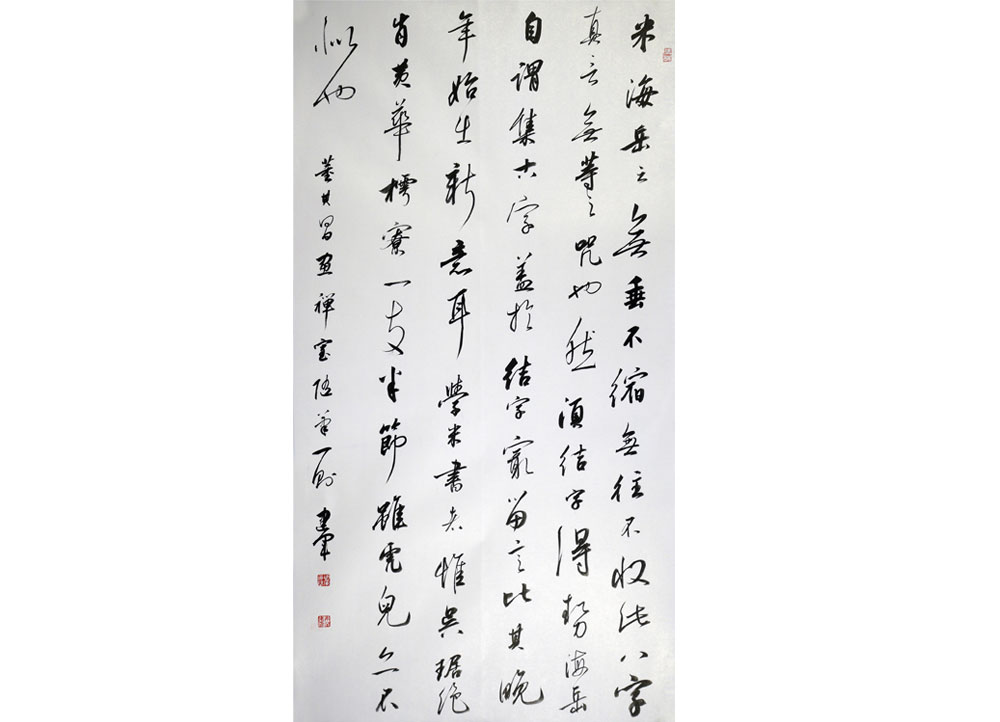 米海岳無垂不縮無往不收此八字
真言無等之咒也然須結字得勢海岳
自謂集古字蓋於結字最留意比其晚
年始出新意耳學米書者惟吳琚絕
肖黃華樗寮一支半節雖虎兒亦不
似也
董其昌畫禪室隨筆一則 建軍